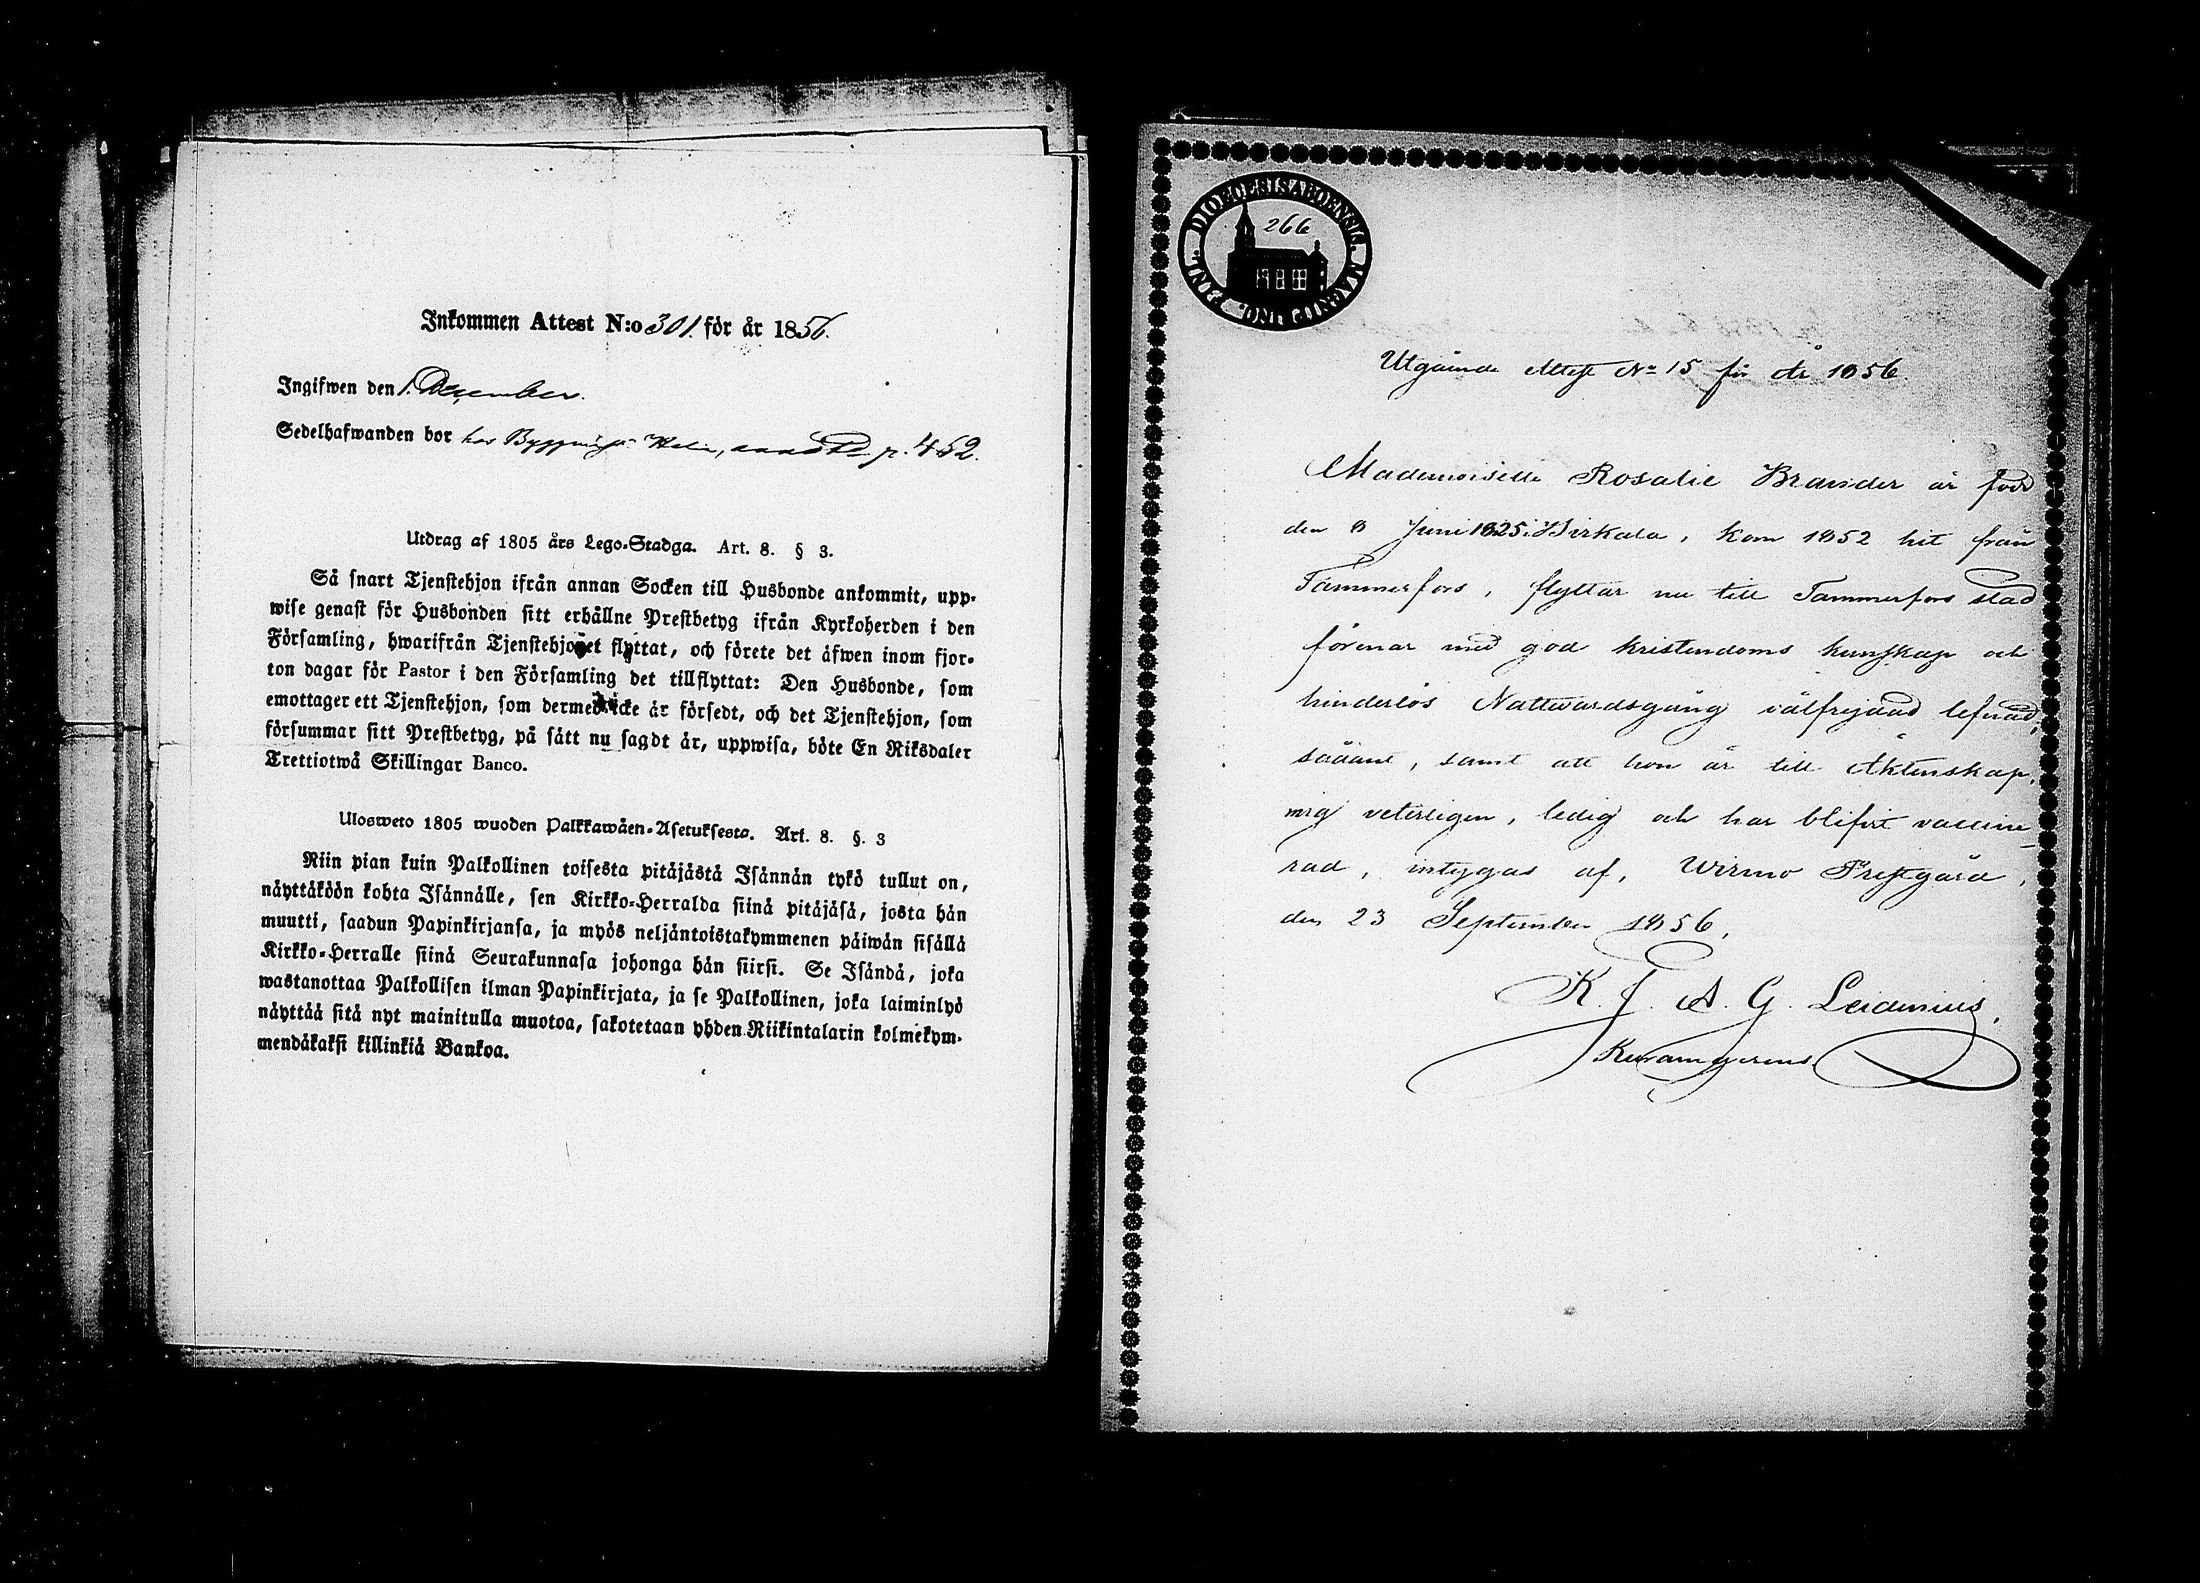 Inkommen Attest N:o 301. för år 1856.
Ingifwen den 1. December.
Sedelhafwanden bor hos p. 452.
Utdrag af 1805 års Lego-Stadga. Art. 8. § 3.
Så snart Tjenstehjon ifrån annan Socken till Husbonde ankommit, upp-
wise genast för Husbonden sitt erhållne Prestbetyg ifrån Kyrkoherden i den
Församling, hwarifrån Tjenstehjonet flyttat, och förete det äfwen inom fjor-
ton dagar för Pastor i den Församling det tillflyttat: Den Husbonde, som
emottager ett Tjenstehjon, som dermed icke är försedt, och det Tjenstehjon, som
försummar sitt Prestbetyg, på sätt nu sagdt är, uppwisa, böte En Riksdaler
Trettiotwå Skillingar Banco.
Ulosweto 1805 wuoden Palkkawäen-Asetuksesta. Art. 8. §. 3
Niin pian kuin Palkollinen toisesta pitäjästä Isännän tykö tullut on,
näyttäköön kohta Isännälle, sen Kirkko-Herralda siinä pitäjäsä, josta hän
muutti, saadun Papinkirjansa, ja myös neljäntoistakymmenen päiwän sisällä
Kirkko-Herralle siinä Seurakunnasa johonga hän siirsi. Se Isändä, joka
wastanottaa Palkollisen ilman Papinkirjata, ja se Palkollinen, joka laiminlyö
näyttää sitä nyt mainitulla muotoa, sakotetaan yhden Riikintalarin kolmekym-
mendäkaksi killinkiä Bankoa.
DIOECESIS ABOENSIS. MAGNI DUC. FINL.
266
Utgående Attest No 15 för År 1856.
Mademoiselle Rosalie Brander är född
den 8 Juni 1825 i Birkala, kom 1852 hit från
Tammerfors, flyttar nu till Tammerfors stad
förenar med god kristendoms kunskap och
hinderlös Nattwardsgång välfrejdad lefnad,
sådant, samt att hon är till Äktenskap,
mig veterligen, ledig och har blifvit vaccine-
rad, intygas af, Wirmo Prestgård,
den 23 September 1856.
K. J. A. G. Leidenius,